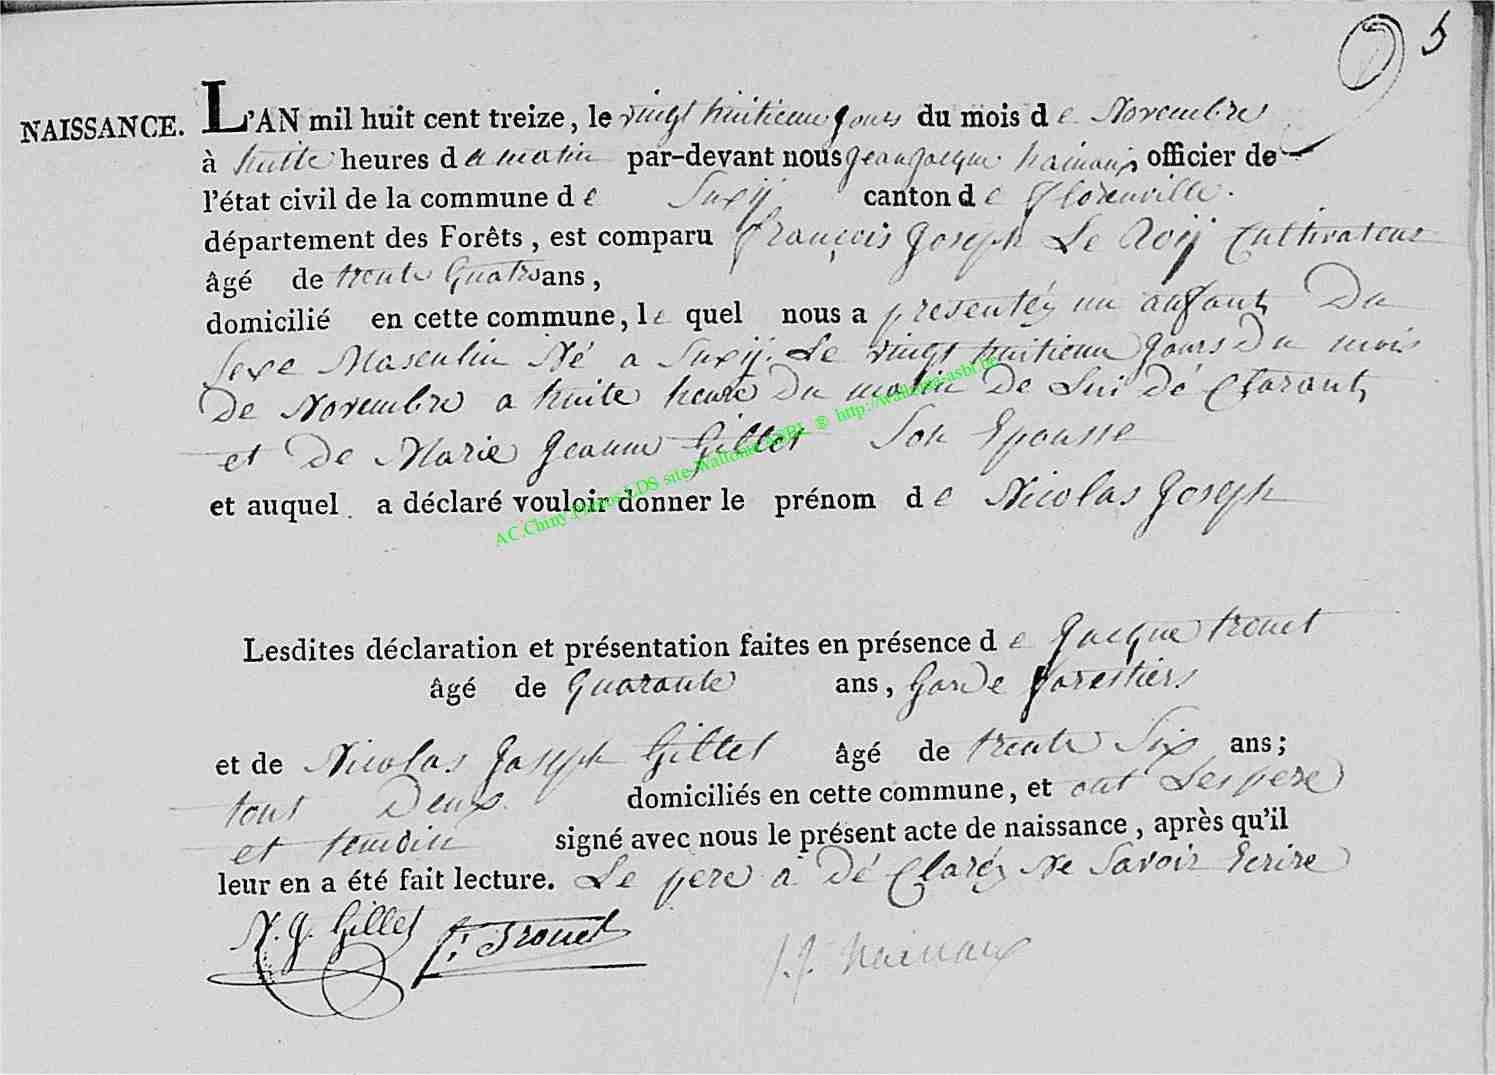 5
NAISSANCE. L'AN mil huit cent treize, le vingt huitieme jours du mois de Novembre
à huite heures du matin par-devant nous jean jacque hainaux officier de
l'état civil de la commune de Suxij canton de florenville.
département des Forêts, est comparu françois joseph Le Roij Cultivateur
âgé de trente Quatre ans,
domicilié en cette commune, le quel nous a presentéz un anfant Du
Sexe Masculin Né a Suxij. Le vingt huitieme jours Du mois
De Novembre a huite heure Du matin De Lui Dé Clarant
et De Marie jeanne Gillet Son Epousse
et auquel a déclaré vouloir donner le prénom de Nicolas joseph
AC.Chiny Photos LDS site Wallonie ASBL © http://wallonia-asbl.be
Lesdites déclaration et présentation faites en présence de jacque trouet
âgé de Quarante ans, Garde forestier
et de Nicolas joseph Gillet âgé de trente Six ans;
tout Deux domiciliés en cette commune, et ont Les pere
et temoin signé avec nous le présent acte de naissance, après qu'il
leur en a été fait lecture. Le pere a Dé Claréz Ne Savoir Ecrire
N. j. Gillet j: Trouet
j. j. hainaux